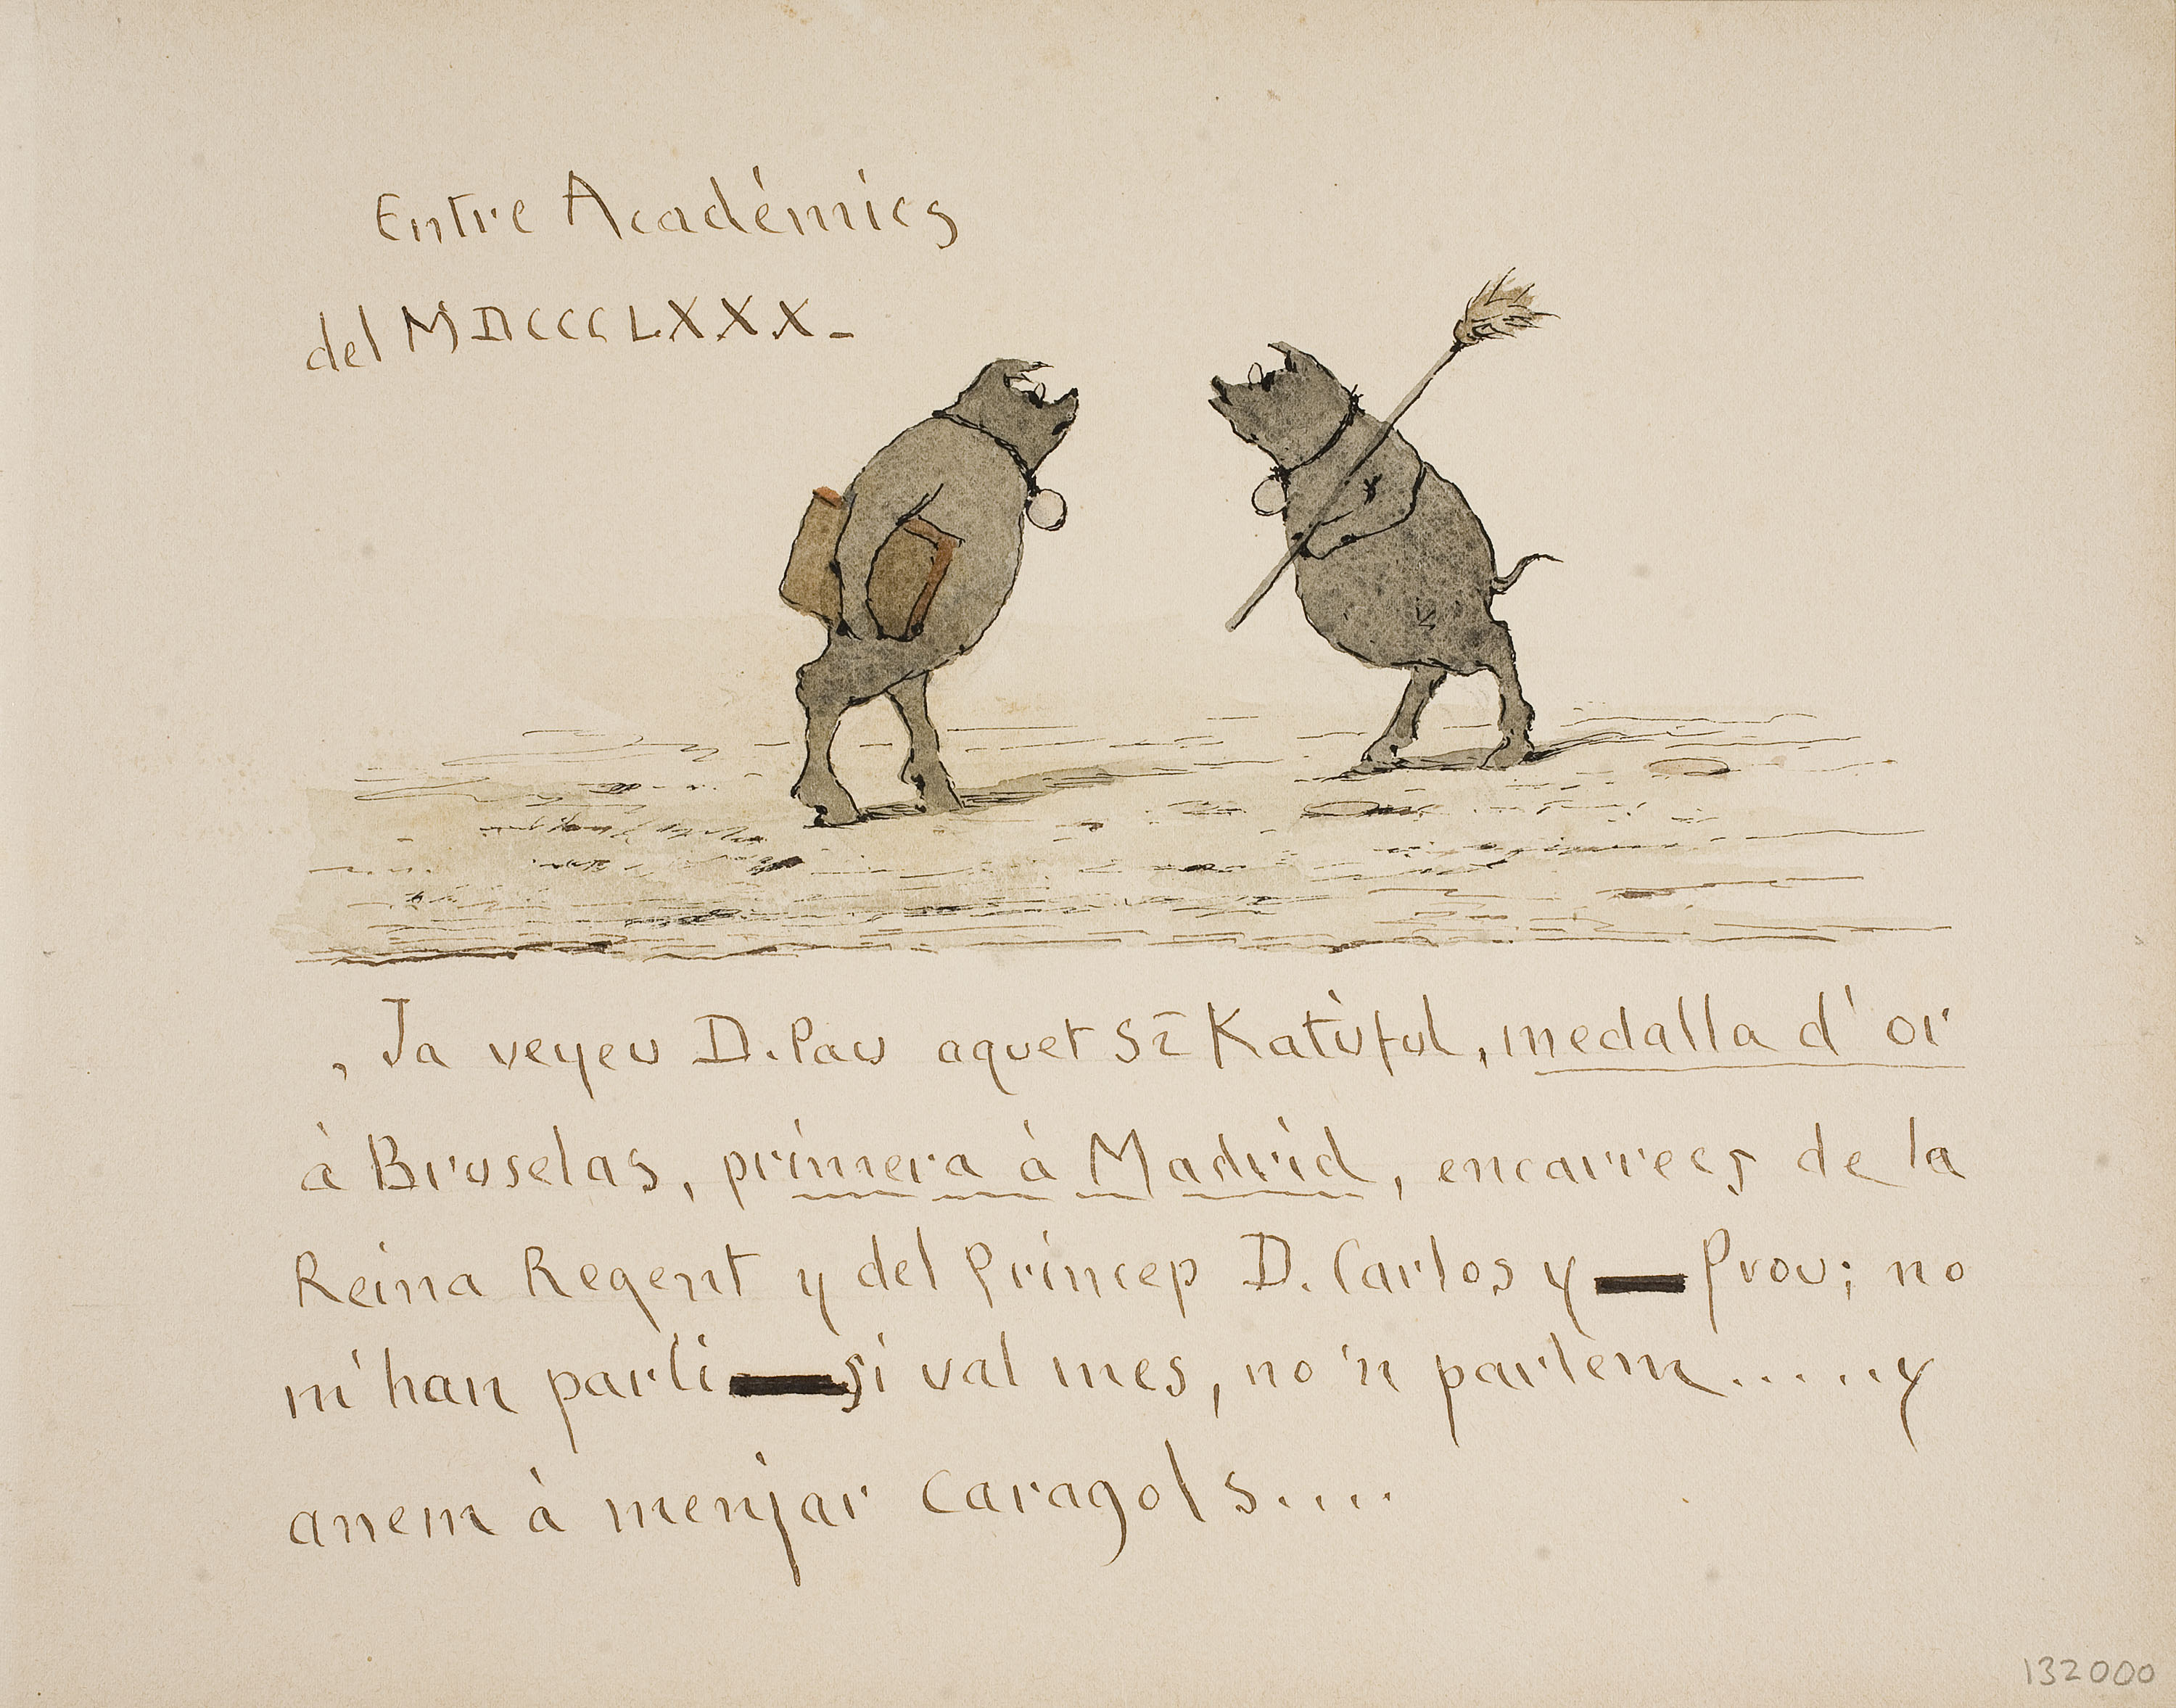 Entre Académics
del MDCCCLXXX-
, Ja veyeu D. Pau aquet Sr Katúful, medalla d'or
à Bruselas, primera à Madrid, encarrecs de la
Reina Regent y del Príncep D. Carlos y Prou; no
m'han parli si val mes, no'n parlem......y
anem à menjar Caragols....
132000